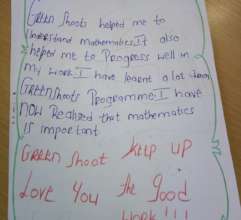 GREEN Shoots helped me to
Understand mathematics It also
helped me to Progress well in
my work I have learnt a lot
GREENShoots Programme I have
NOW Realized that mathematics
is important
GREEN Shoot KEEP UP
Love You the good
work!!!